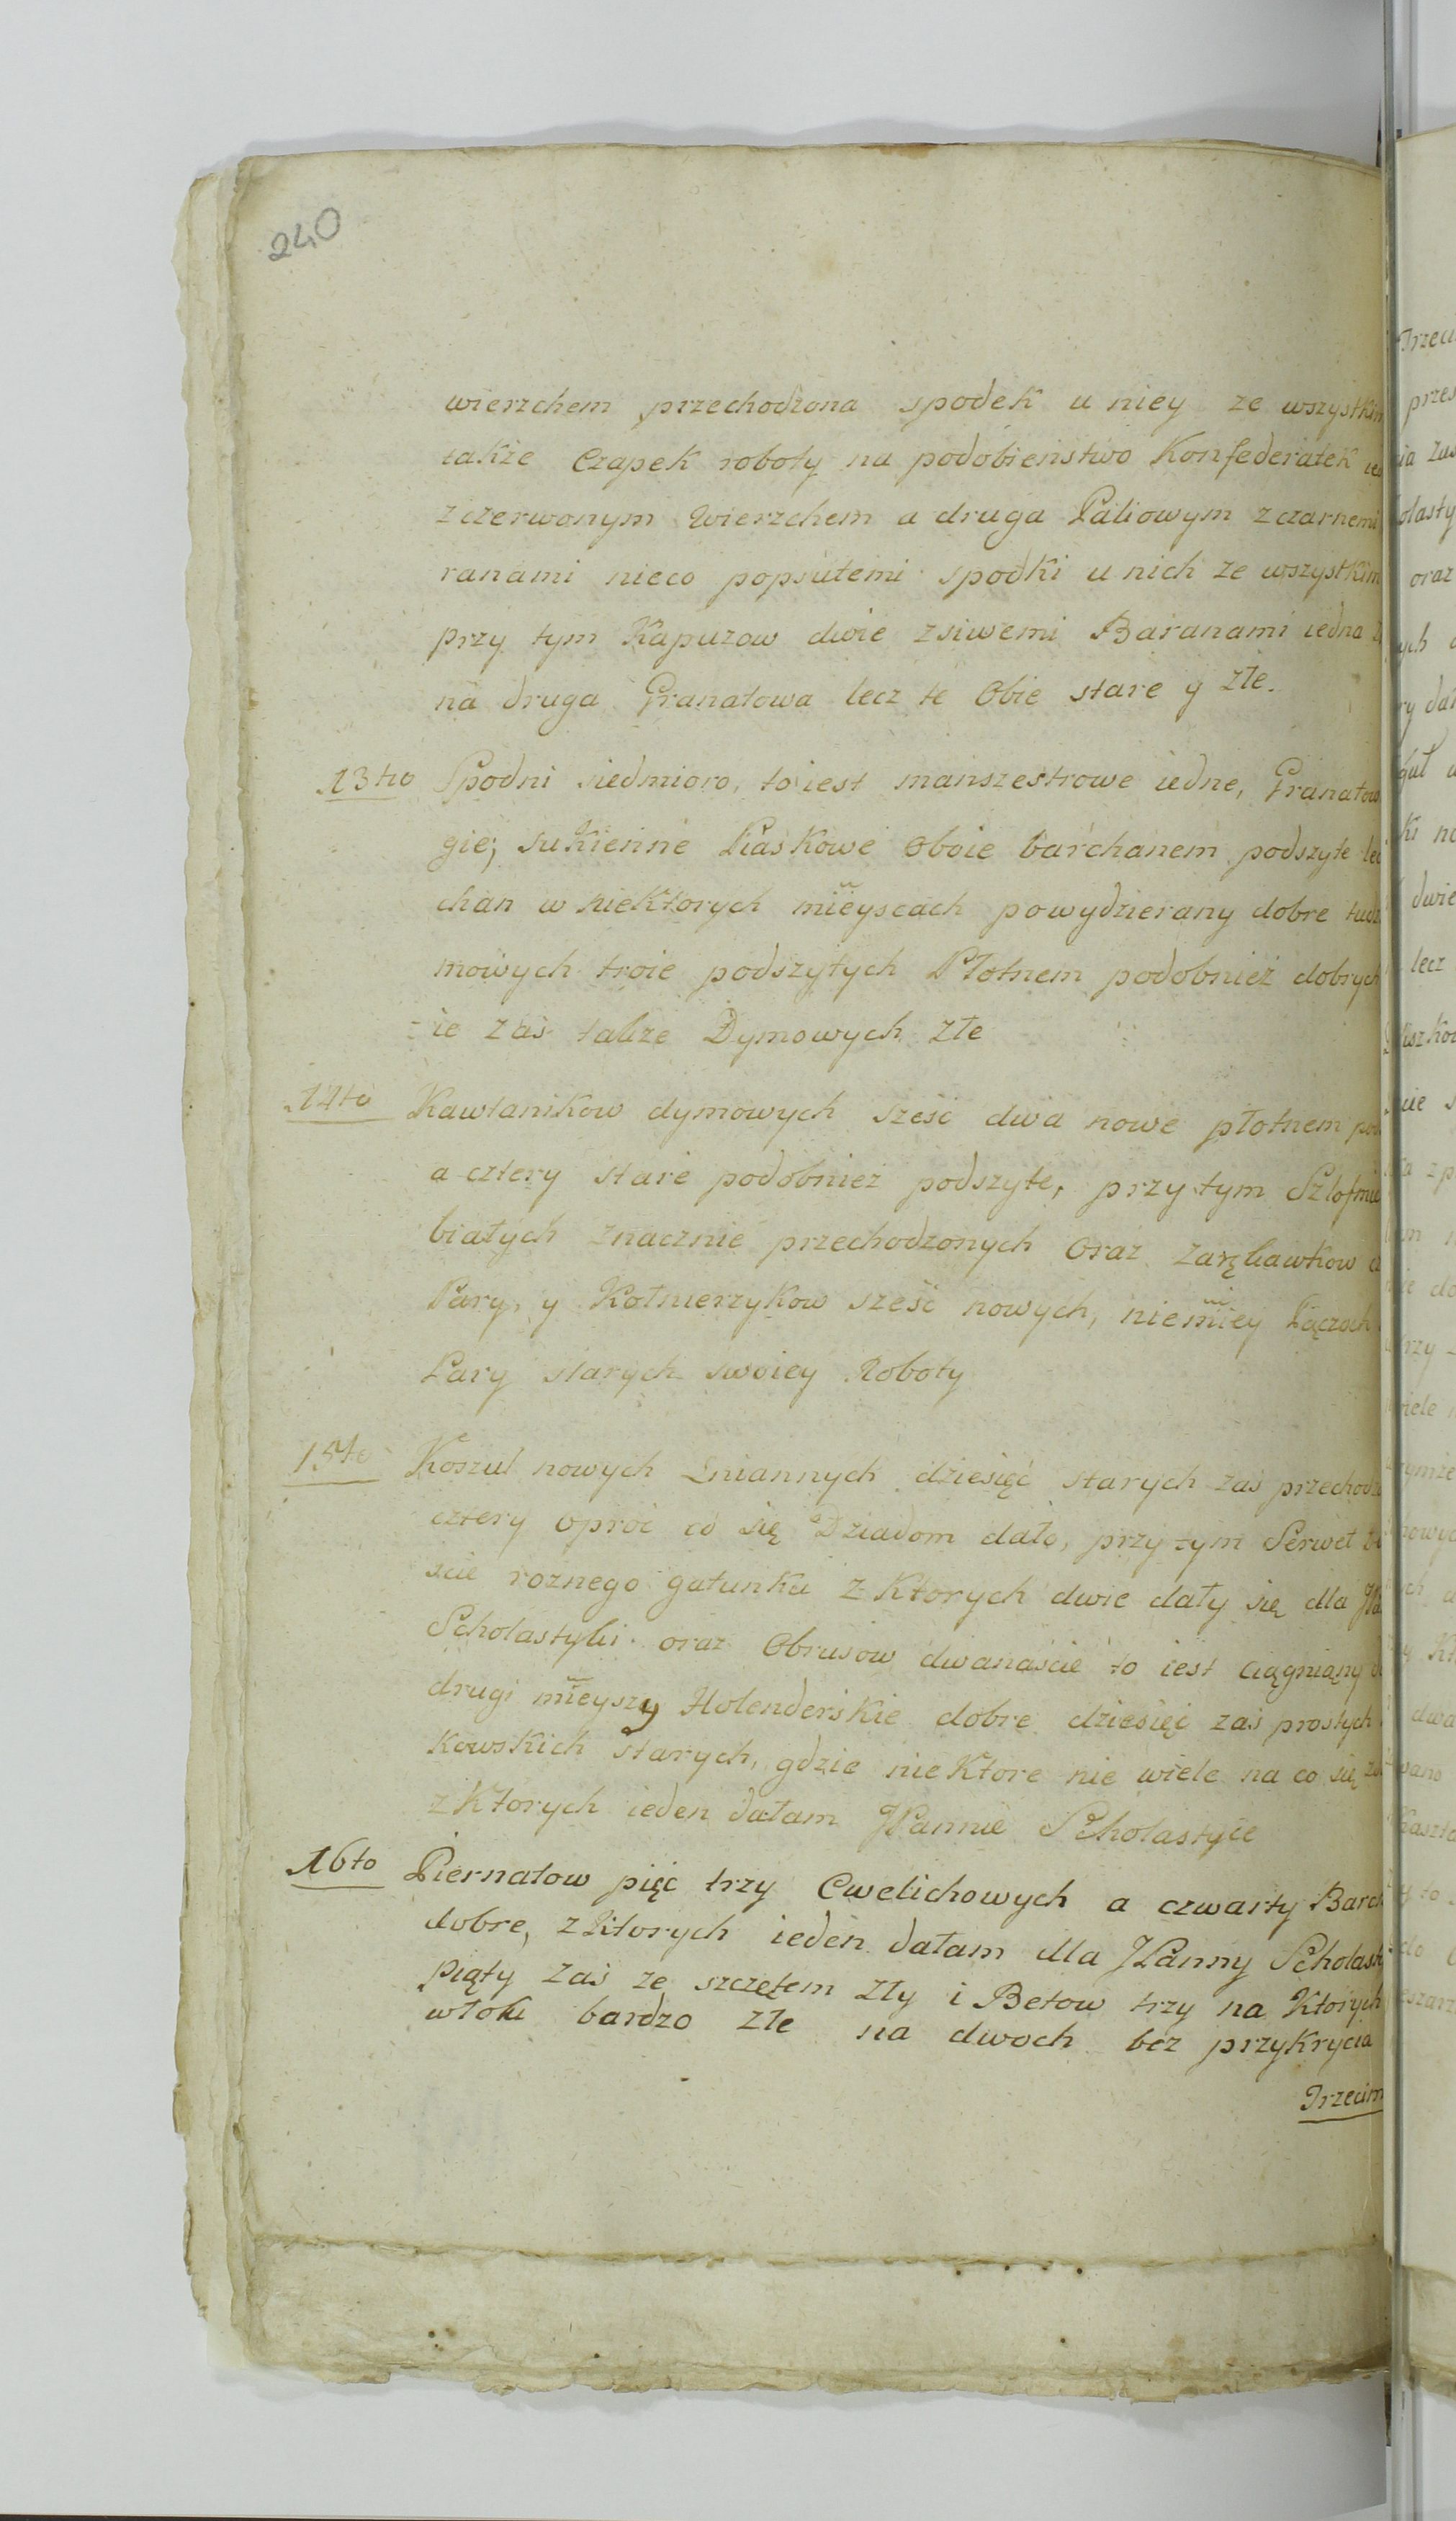 240
wierzchem przechodzona spodek u niey ze wszystkim
także Czapek roboty na podobieństwo Konfederatek
z czerwonym Wierzchem a druga Paliowym z czarnemi
ranami nieco popsutemi spodki u nich ze wszystkim
przy tym Kapuzow dwie z siwemi Baranami iedna
na druga Granatowa lecz te Obie stare y złe.
13tio Spodni siedmioro, to iest manszestrowe iedne, Granatow
gie; sukienne Piaskowe Oboie barchanem podszyte
chan w niektorych mieyscach powydzierany dobre
mowych troie podszytych Płotnem podobnież dobrych
ie zaś także Dymowych złe
14to Kawtanikow dymowych sześć dwa nowe płotnem
a cztery stare podobnież podszyte, przy tym
białych znacznie przechodzonych Oraz zarękawkow
Pary, y Kołnierzykow sześć nowych, niemiey
Pary starych swoiey Roboty
15to Koszul nowych Lniannych dziesięć starych zaś przechodz
cztery oproć co się Dziadom dało, przy tym Serwet
ście roznego gatunku z Ktorych dwie dały się dla
Scholastyki oraz Obrusow dwanaście to iest ciągniąny
drugi mieyszy Holenderskie dobre dziesięć zaś prostych
Kowskich starych, gdzie nie Ktore nie wiele na co się
z Ktorych ieden dałam JPannie Scholastyce
16to Piernatow pięć trzy Cwelichowych a czwarty Barch
dobre, z Ktorych ieden dałam dla JPanny Scholast
piąty zaś ze szczętem zły i Betow trzy na Ktorych
włoki bardzo złe na dwoch bez przykrycia
Trzecim